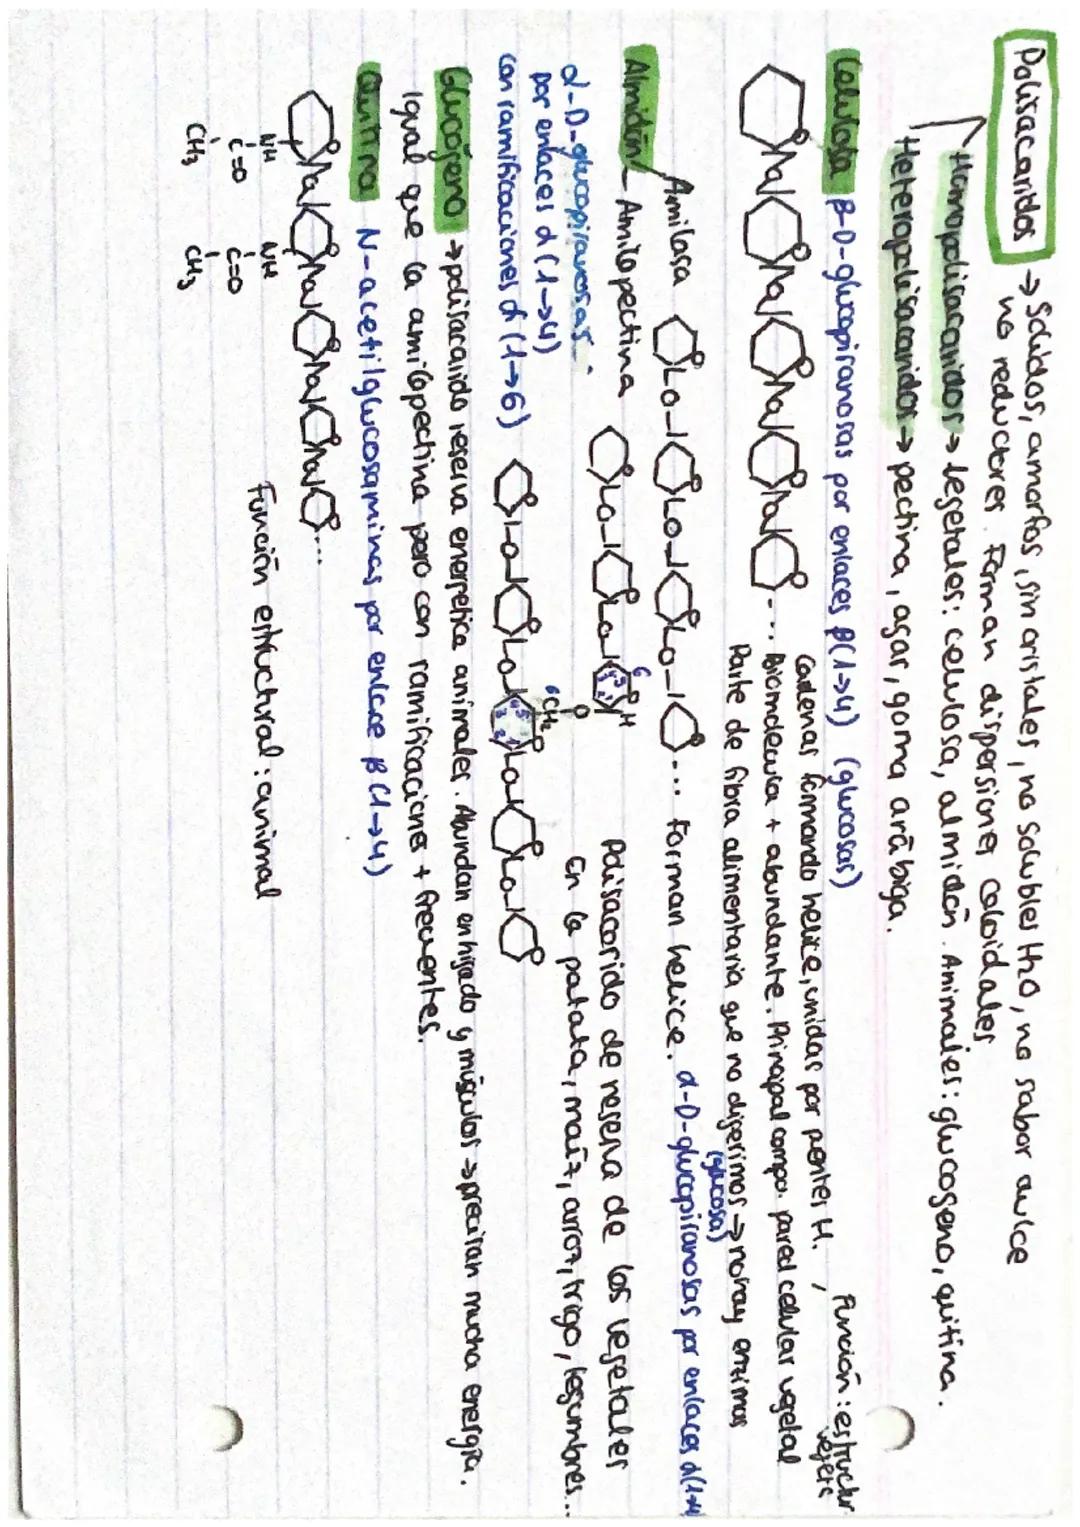 Polisacaridos → Sólidos, amorfos, sin cristales, no solubles H2O, no sabor dulce
no reductores. Forman dispersiones coloidales
Homopolisacaridos → Vegetales: celulosa, almidón. Animales: glucogeno, quitina.
Heteropolisacaridos → pectina, agar, goma arábiga.
Celulosa β-D-glucopiranosas por enlaces β(1→4) (glucosas)
Cadenas formando helice, unidas por puentes H. Función: estructur
vegeta
... Biomolecula + abundante. Principal compo. pared celular vegetal
Parte de fibra alimentaria que no digerimos → no hay enzimas
(glucosa)
Almidón Amilosa O O O ... Forman helice. α-D-glucopiranosas por enlaces α(1→4)
Amilopectina O O 6 H
Polisacarido de reserva de los vegetales
En la patata, maíz, arroz, trigo, legumbres...
α-D-glucopiranosas
por enlaces α(1→4)
con ramificaciones α(1→6)
O
6CH2
Glucógeno → polisacarido reserva energetica animales. Abundan en higado y músculos → precisan mucha energía.
Igual que la amilopectina pero con ramificaciones + frecuentes.
Quitina N-acetilglucosaminas por enlace β(1→4)
...
NH NH
C=O C=O
CH3 CH3
Función estructural: animal